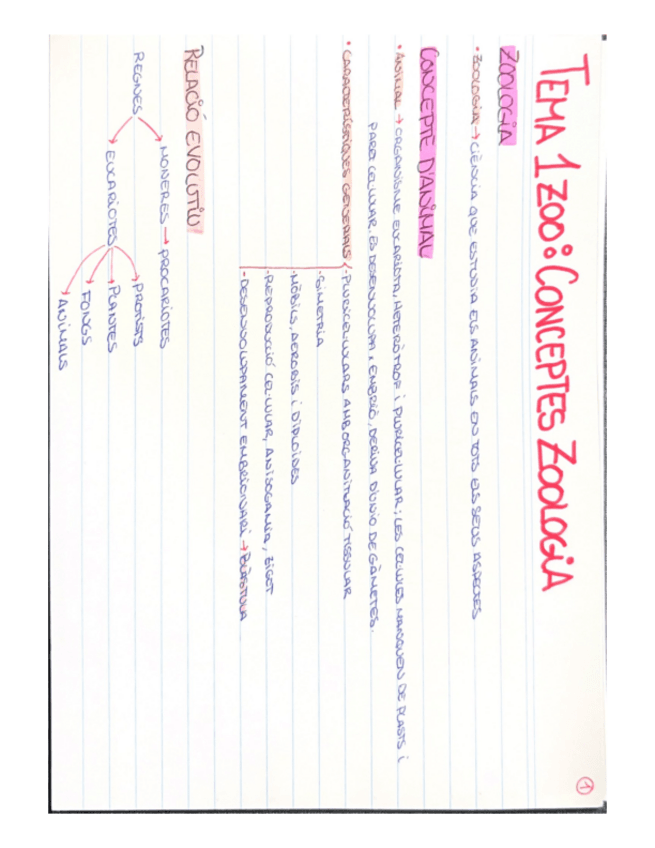 TEMA 1 ZOO: CONCEPTES ZOOLOGIA
1
ZOOLOGIA
• ZOOLOGIA → CIÈNCIA QUE ESTUDIA ELS ANIMALS EN TOTS ELS SEUS ASPECTES
CONCEPTE D'ANIMAL
• ANIMAL → ORGANISME EUCARIOTA, HETERÒTROF i PLURICEL·LULAR; LES CÈL·LULES MANQUEN DE PLASTS i
PARET CEL·LULAR. ES DESENVOLUPA x EMBRIÓ, DERIVA D'UNIÓ DE GÀMETES.
• CARACTERÍSTIQUES GENERALS - PLURICEL·LULARS AMB ORGANITZACIÓ TISSULAR
- SIMETRIA
- MÒBILS, AEROBIS i DIPLOIDES
- REPRODUCCIÓ CEL·LULAR, ANISOGAMIA, ZIGOT
- DESENVOLUPAMENT EMBRIONARI → BLÀSTULA
RELACIÓ EVOLUTIU
REGNES → MONERES → PROCARIOTES
→ EUCARIOTES → PROTISTS
→ PLANTES
→ FONGS
→ ANIMALS